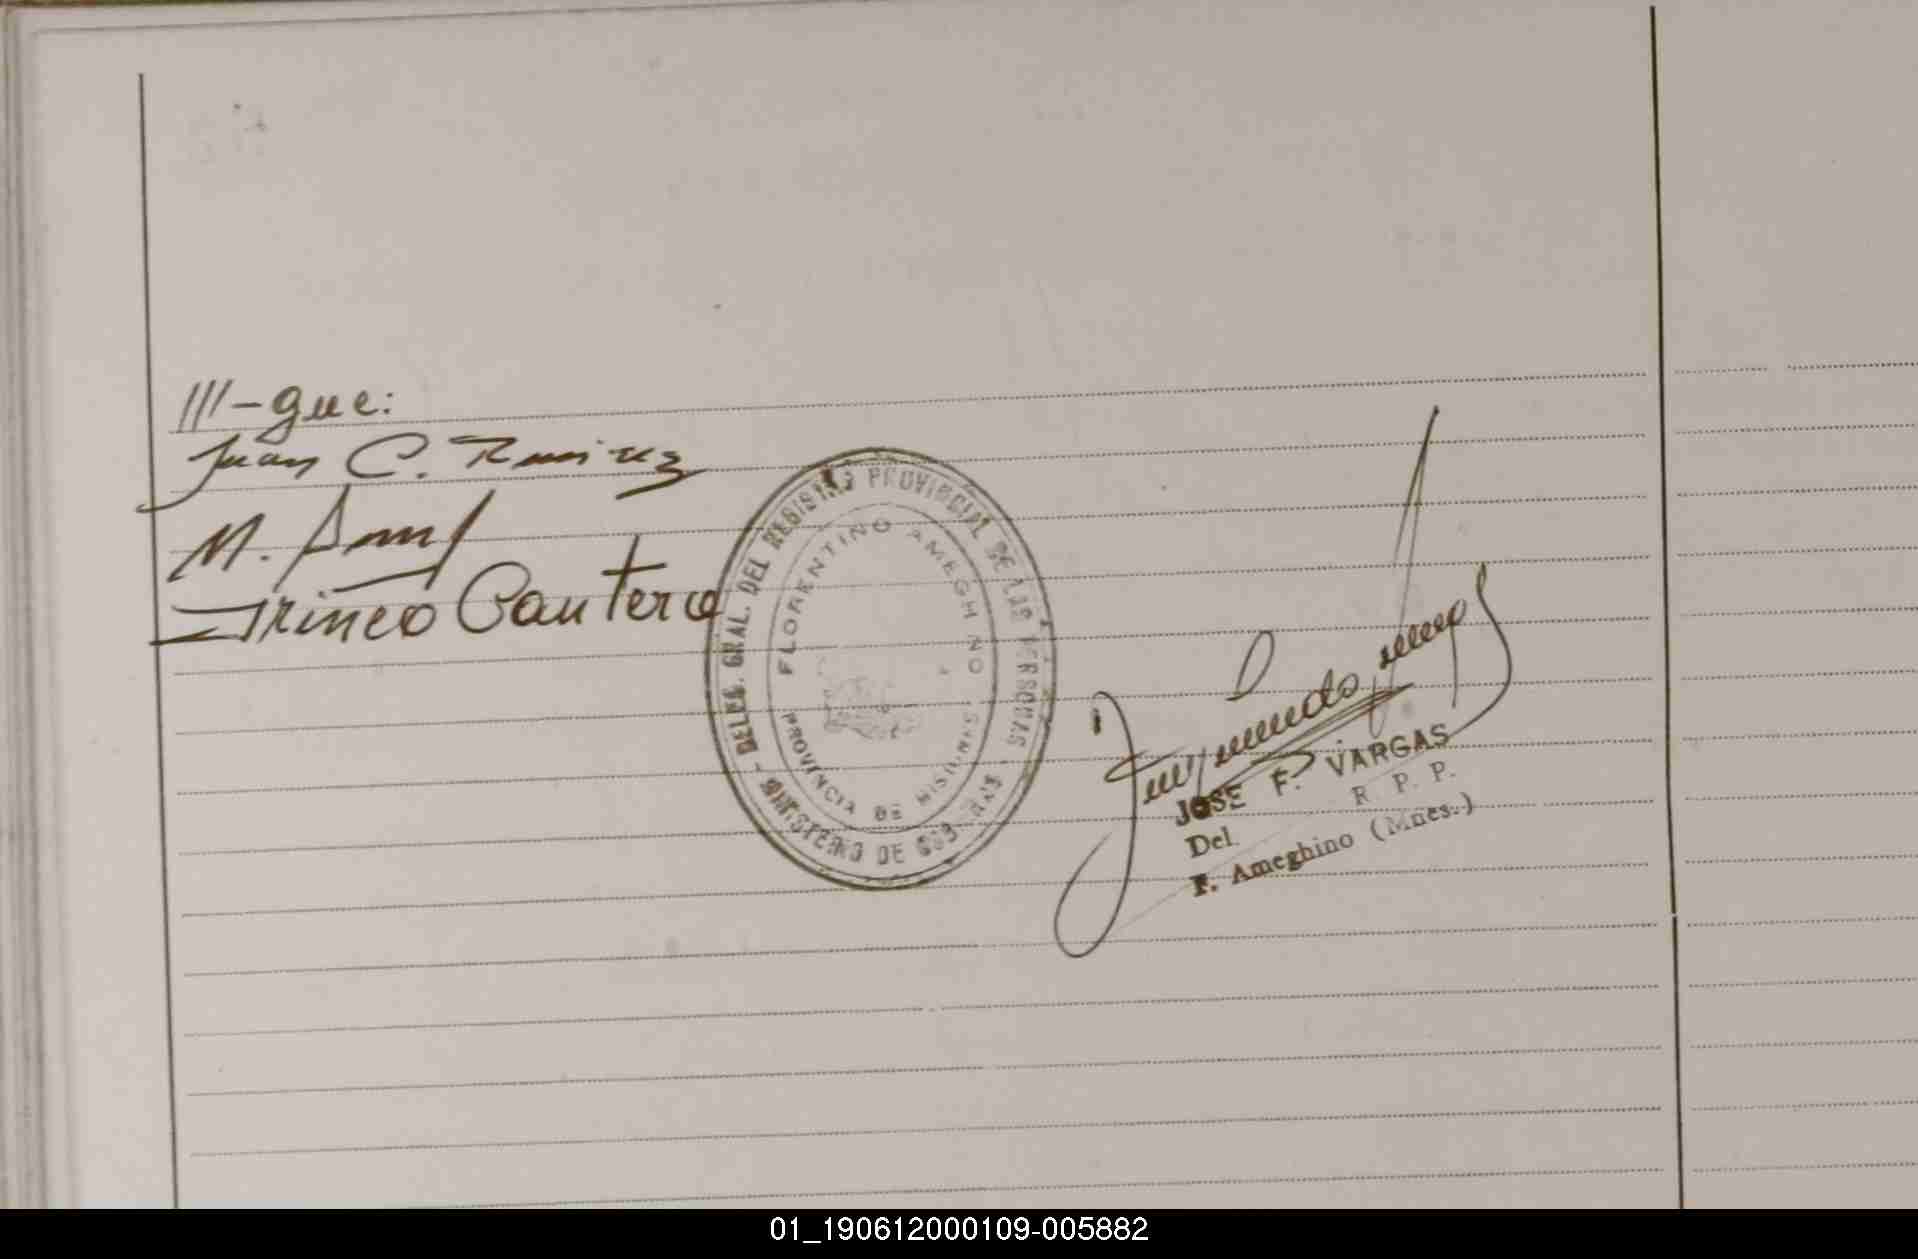 ///-gue:
Juan C. Ramirez
M.
Irineo Cantero
DELEG. GRAL. DEL REGISTRO PROVINCIAL DE LAS PERSONAS
MINISTERIO DE GOB.
FLORENTINO AMEGHINO
PROVINCIA DE MISIONES
JOSE F. VARGAS
Del. R. P. P.
F. Ameghino (Mnes.)
01_190612000109-005882